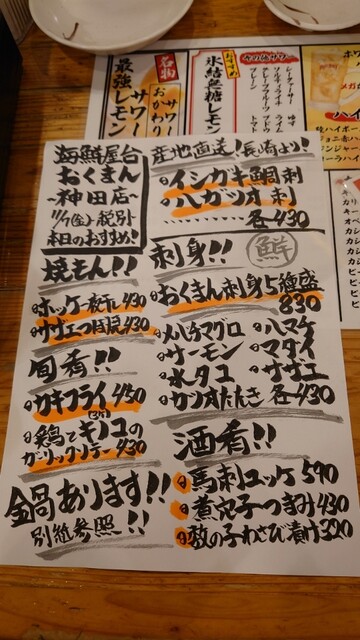 名物
おかわり
サワー
最強レモン
サワー
おすすめ
氷結無糖レモン
その他サワー
プレーン
ライム
海鮮屋台
おくまん
~神田店~
11/7(金)税別
本日のおすすめ!
産地直送!長崎より!
イシガキ鯛刺
ハガツオ刺
‥‥‥‥‥各430
焼もん!!
ホッケ一夜干し430
サザエつぼ焼430
旬肴!!
カキフライ430
(3コ)
鶏とキノコの
ガーリックソテー430
鍋あります!!
別紙参照!!
刺身!!
鮮
おくまん刺身5種盛
830
メバチマグロ
サーモン
水タコ
カツオたたき
ハマチ
マダイ
サザエ
各430
酒肴!!
馬刺ユッケ590
煮穴子つまみ430
数の子わさび漬け320